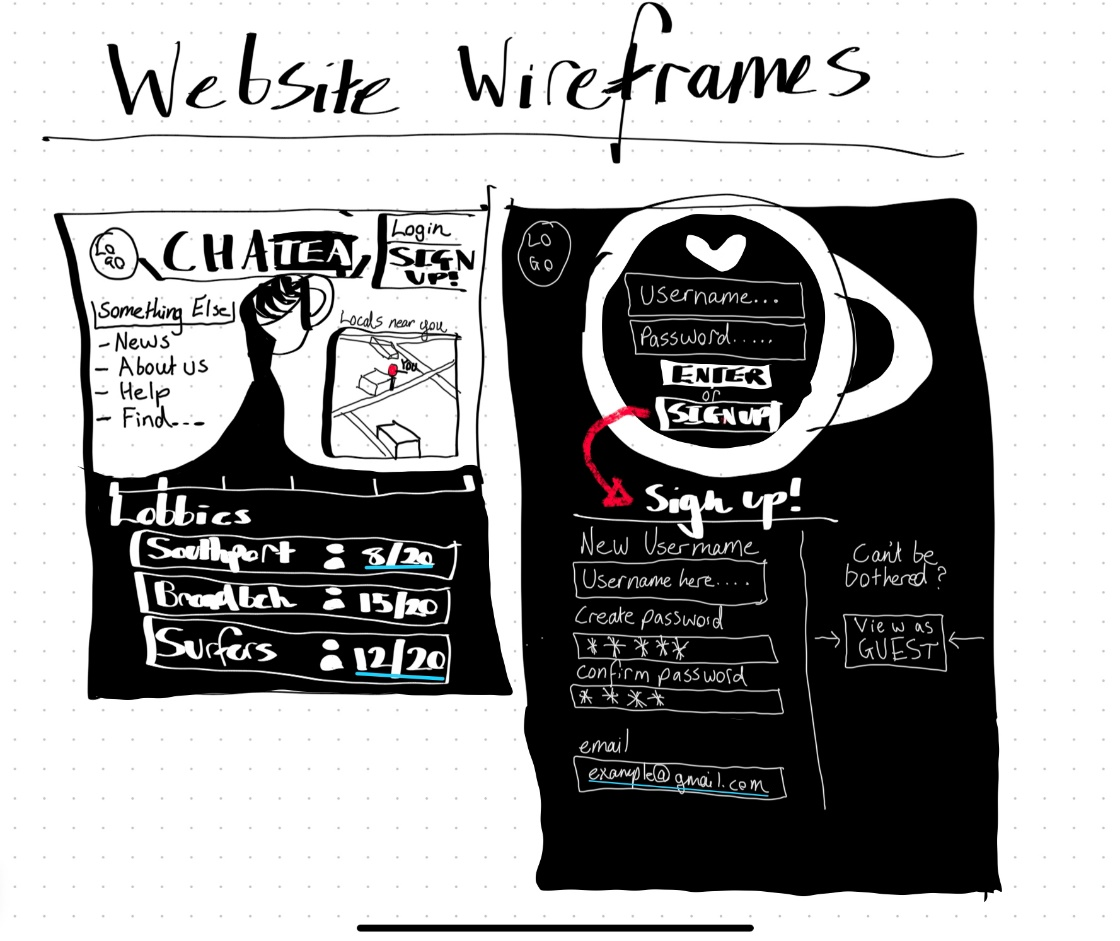 Website Wireframes
LO
GO
CHATTEA
Login
SIGN
UP!
Something Else
- News
- About us
- Help
- Find---
Locals near you
You
Lobbies
Southport 8/20
Broadbch 15/20
Surfers 12/20
LO
GO
Username...
Password.....
ENTER
or
SIGN UP
Sign up!
New Username
Username here....
Create password
*****
confirm password
****
email
example@gmail.com
Can't be
bothered?
View as
GUEST